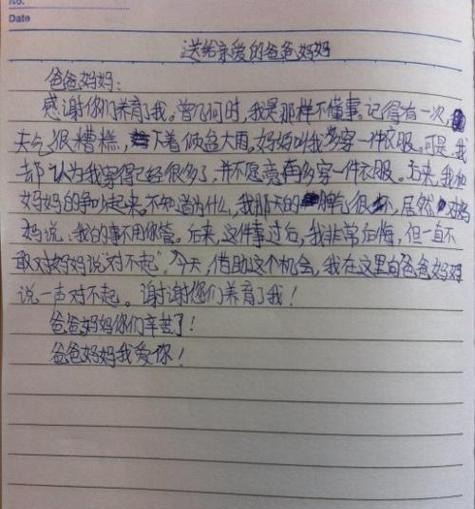 No.
Date
送给亲爱的爸爸妈妈
爸爸妈妈:
感谢你们养育了我。曾几何时,我是那样不懂事。记得有一次,
天气很糟糕,下着倾盆大雨,妈妈叫我多穿一件衣服。可是,我
却认为我穿得已经很多了,并不愿意再多穿一件衣服。后来,我和
妈妈的争吵起来。不知道为什么,我那天的脾气很坏,居然对妈
妈说:我的事不用你管。后来,这件事过后,我非常后悔,但一直不
敢对妈妈说“对不起”,今天,借助这个机会,我在这里向爸爸妈妈
说一声对不起。谢谢您们养育了我!
爸爸妈妈你们辛苦了!
爸爸妈妈我爱你!